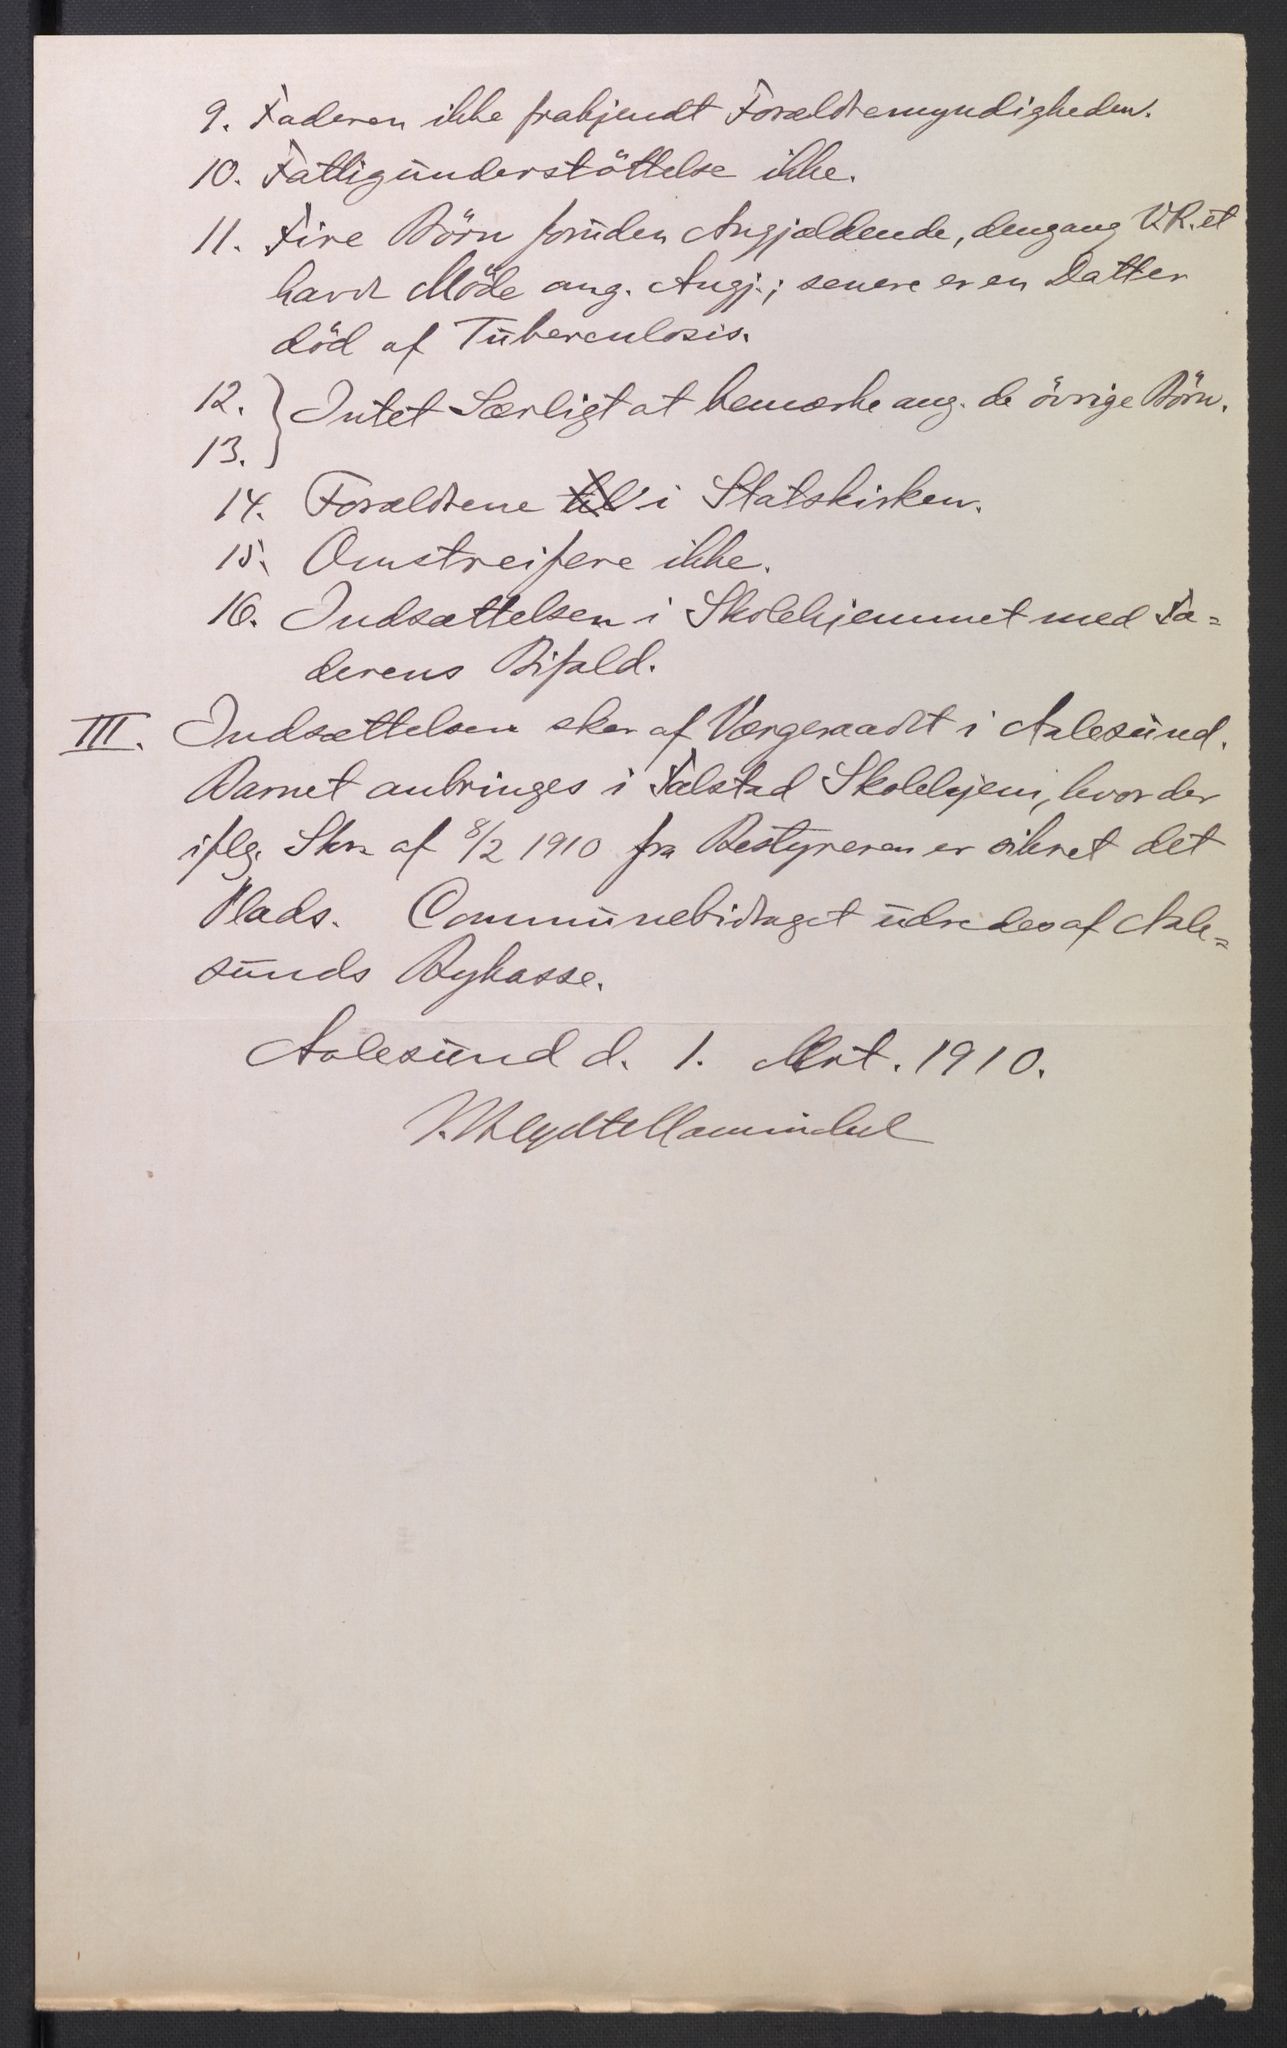 9. Faderen ikke frakjendt Forældremyndigheden.
10. Fattigunderstöttelse ikke.
11. Fire Börn foruden Angjældende, dengang V.R.et
havde Möde ang. Angj.; senere er en Datter
död af Tuberculosis.
12. } Intet Særligt at bemærke ang. de övrige Börn.
13.
14. Forældrene til i Statskirken.
15. Omstreifere ikke.
16. Indsættelsen i Skolehjemmet med Fa=
derens Bifald.
III. Indsættelsen sker af Værgeraadet i Aalesund.
Barnet anbringes i Falstad Skolehjem, hvor der
iflg. Skr. af 8/2 1910 fra Bestyreren er sikret det
Plads. Communebidraget udredes af Aale=
sunds Bykasse.
Aalesund d. 1. Mrt. 1910.